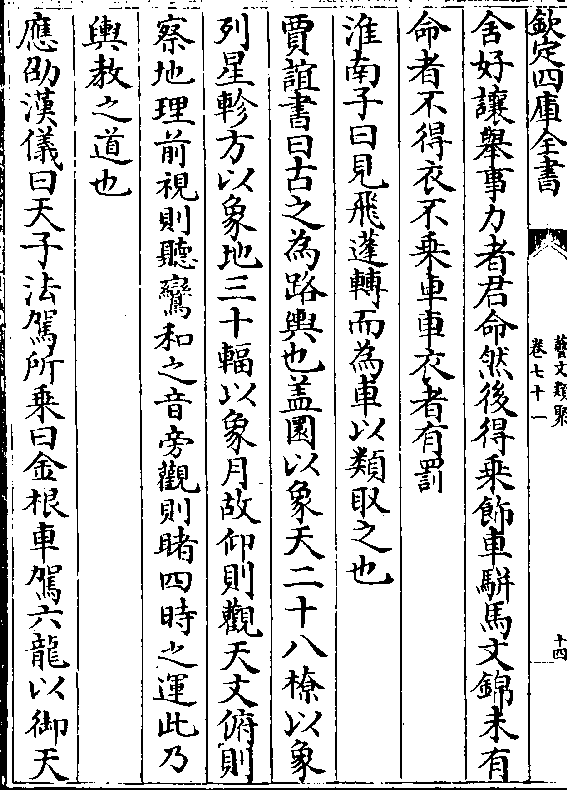 欽定四庫全書
藝文類聚
卷七十一
十四
舍好讓舉事力者君命然後得乘飾車駢馬文錦未有
命者不得衣不乘車車衣者有罰
淮南子曰見飛蓬轉而為車以類取之也
賈誼書曰古之為路輿也蓋圓以象天二十八橑以象
列星軫方以象地三十輻以象月故仰則觀天文俯則
察地理前視則聽鸞和之音旁觀則睹四時之運此乃
輿教之道也
應劭漢儀曰天子法駕所乘曰金根車駕六龍以御天